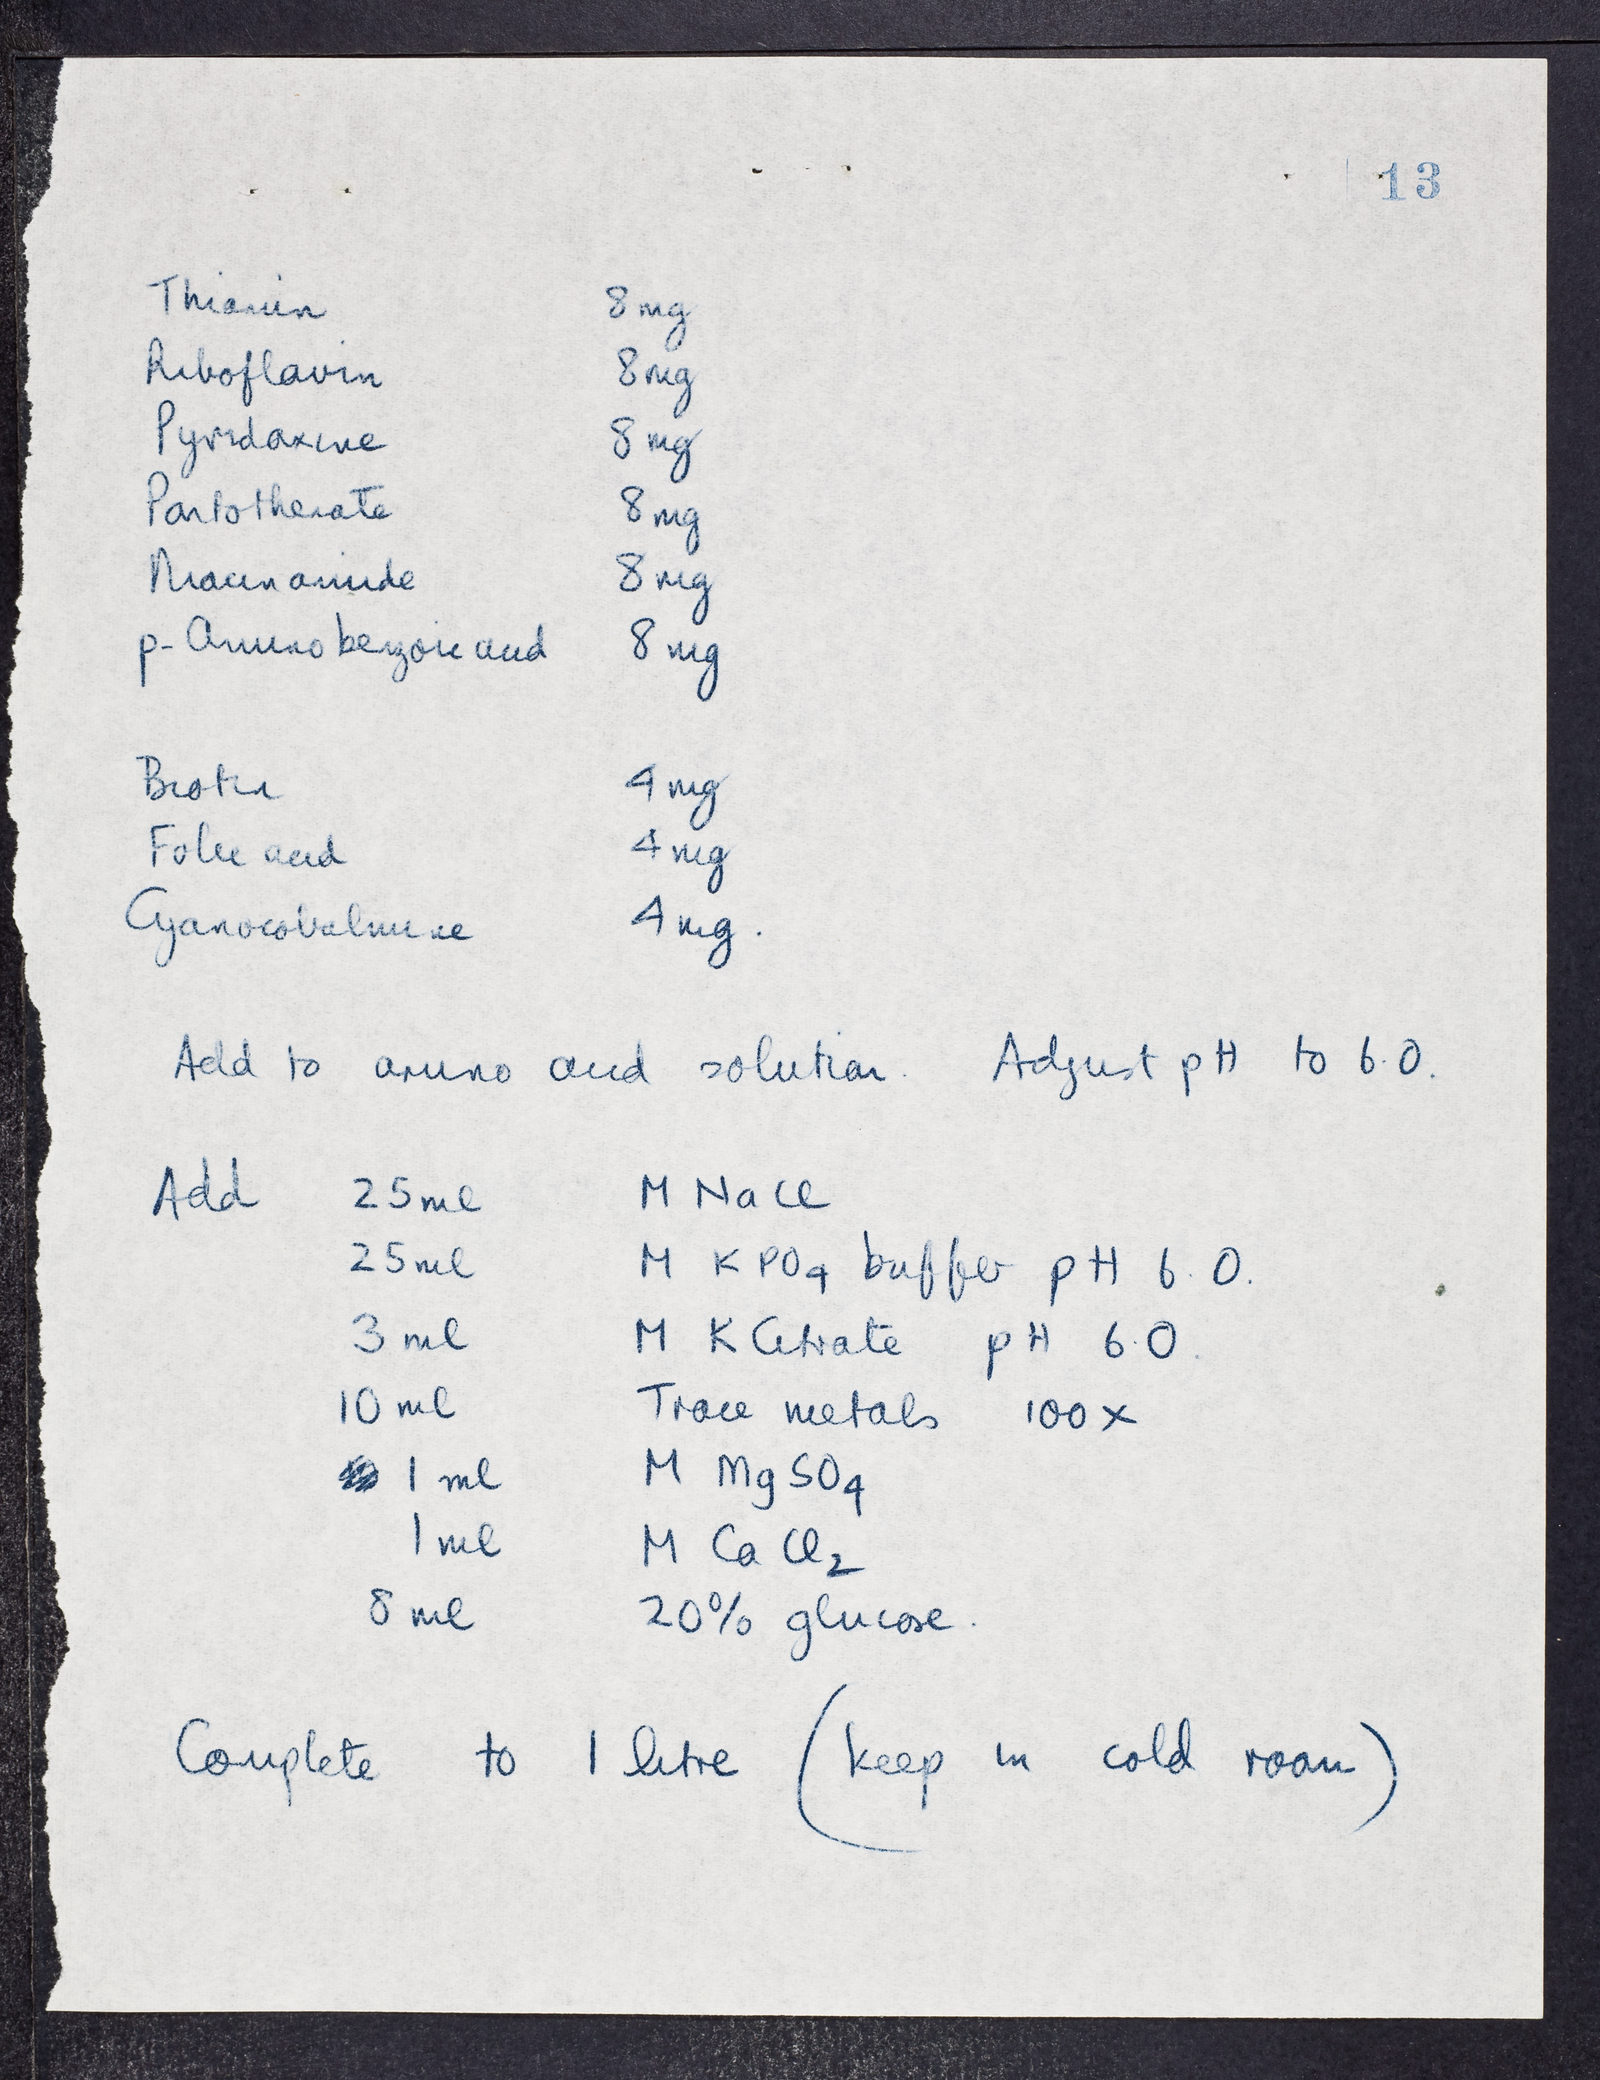 13
Thiamin 8 mg
Riboflavin 8 mg
Pyridoxine 8 mg
Pantothenate 8 mg
Niacinamide 8 mg
p-Aminobenzoic acid 8 mg
Biotin 4 mg
Folic acid 4 mg
Cyanocobalmine 4 mg.
Add to amino acid solution. Adjust pH to 6.0.
Add 25 ml M NaCl
25 ml M KPO4 buffer pH 6.0.
3 ml M K Citrate pH 6.0.
10 ml Trace metals 100x
1 ml M MgSO4
1 ml M CaCl2
8 ml 20% glucose.
Complete to 1 litre (keep in cold room)